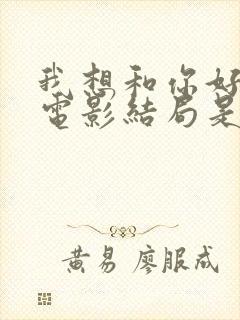 我想和你好
電影結局是
黄易 廖服成